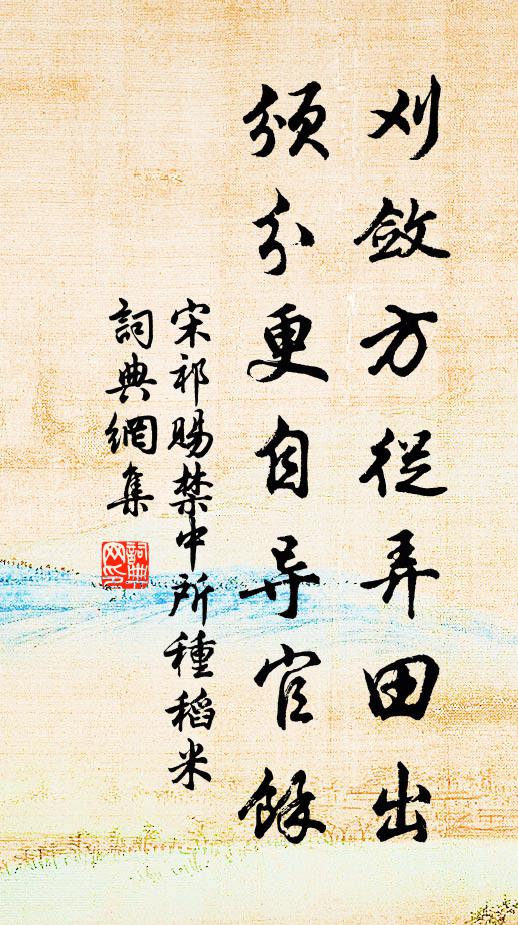 刈斂方從弄田出
頒分更自导官餘
宋祁賜禁中所種稻米
詞典網集
詞典網印